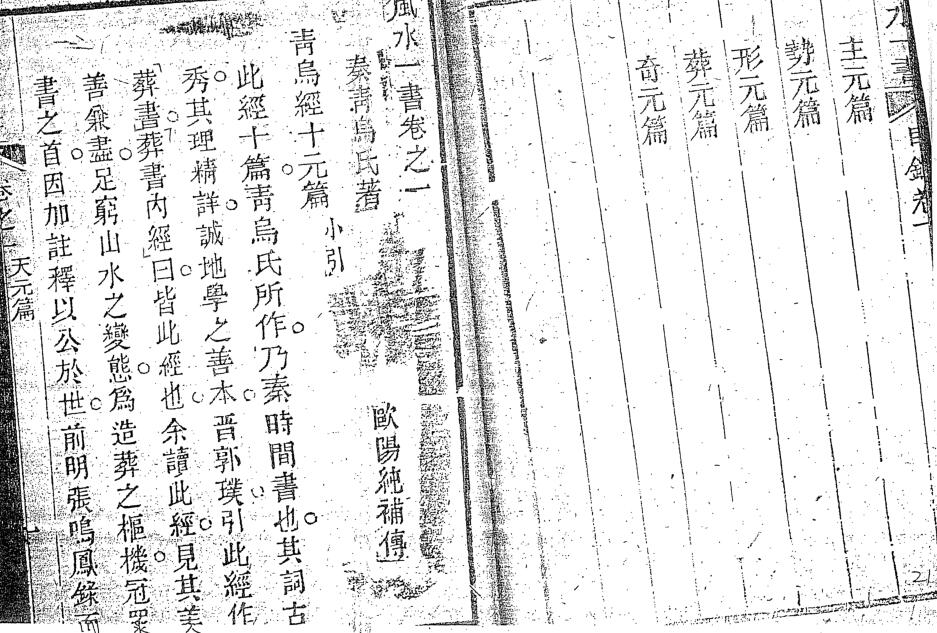 水一書
目錄卷一
主元篇
勢元篇
形元篇
葬元篇
奇元篇
21
風水一書卷之一
秦青烏氏著
歐陽純補傳
青烏經十元篇
小引
此經十篇青烏氏所作乃秦時間書也其詞古
秀其理精詳誠地學之善本晋郭璞引此經作
葬書葬書內經曰皆此經也余讀此經見其美
善兼盡足窮山水之變態爲造葬之樞機冠羣
書之首因加註釋以公於世前明張鳴鳳錄而
卷之一
天元篇